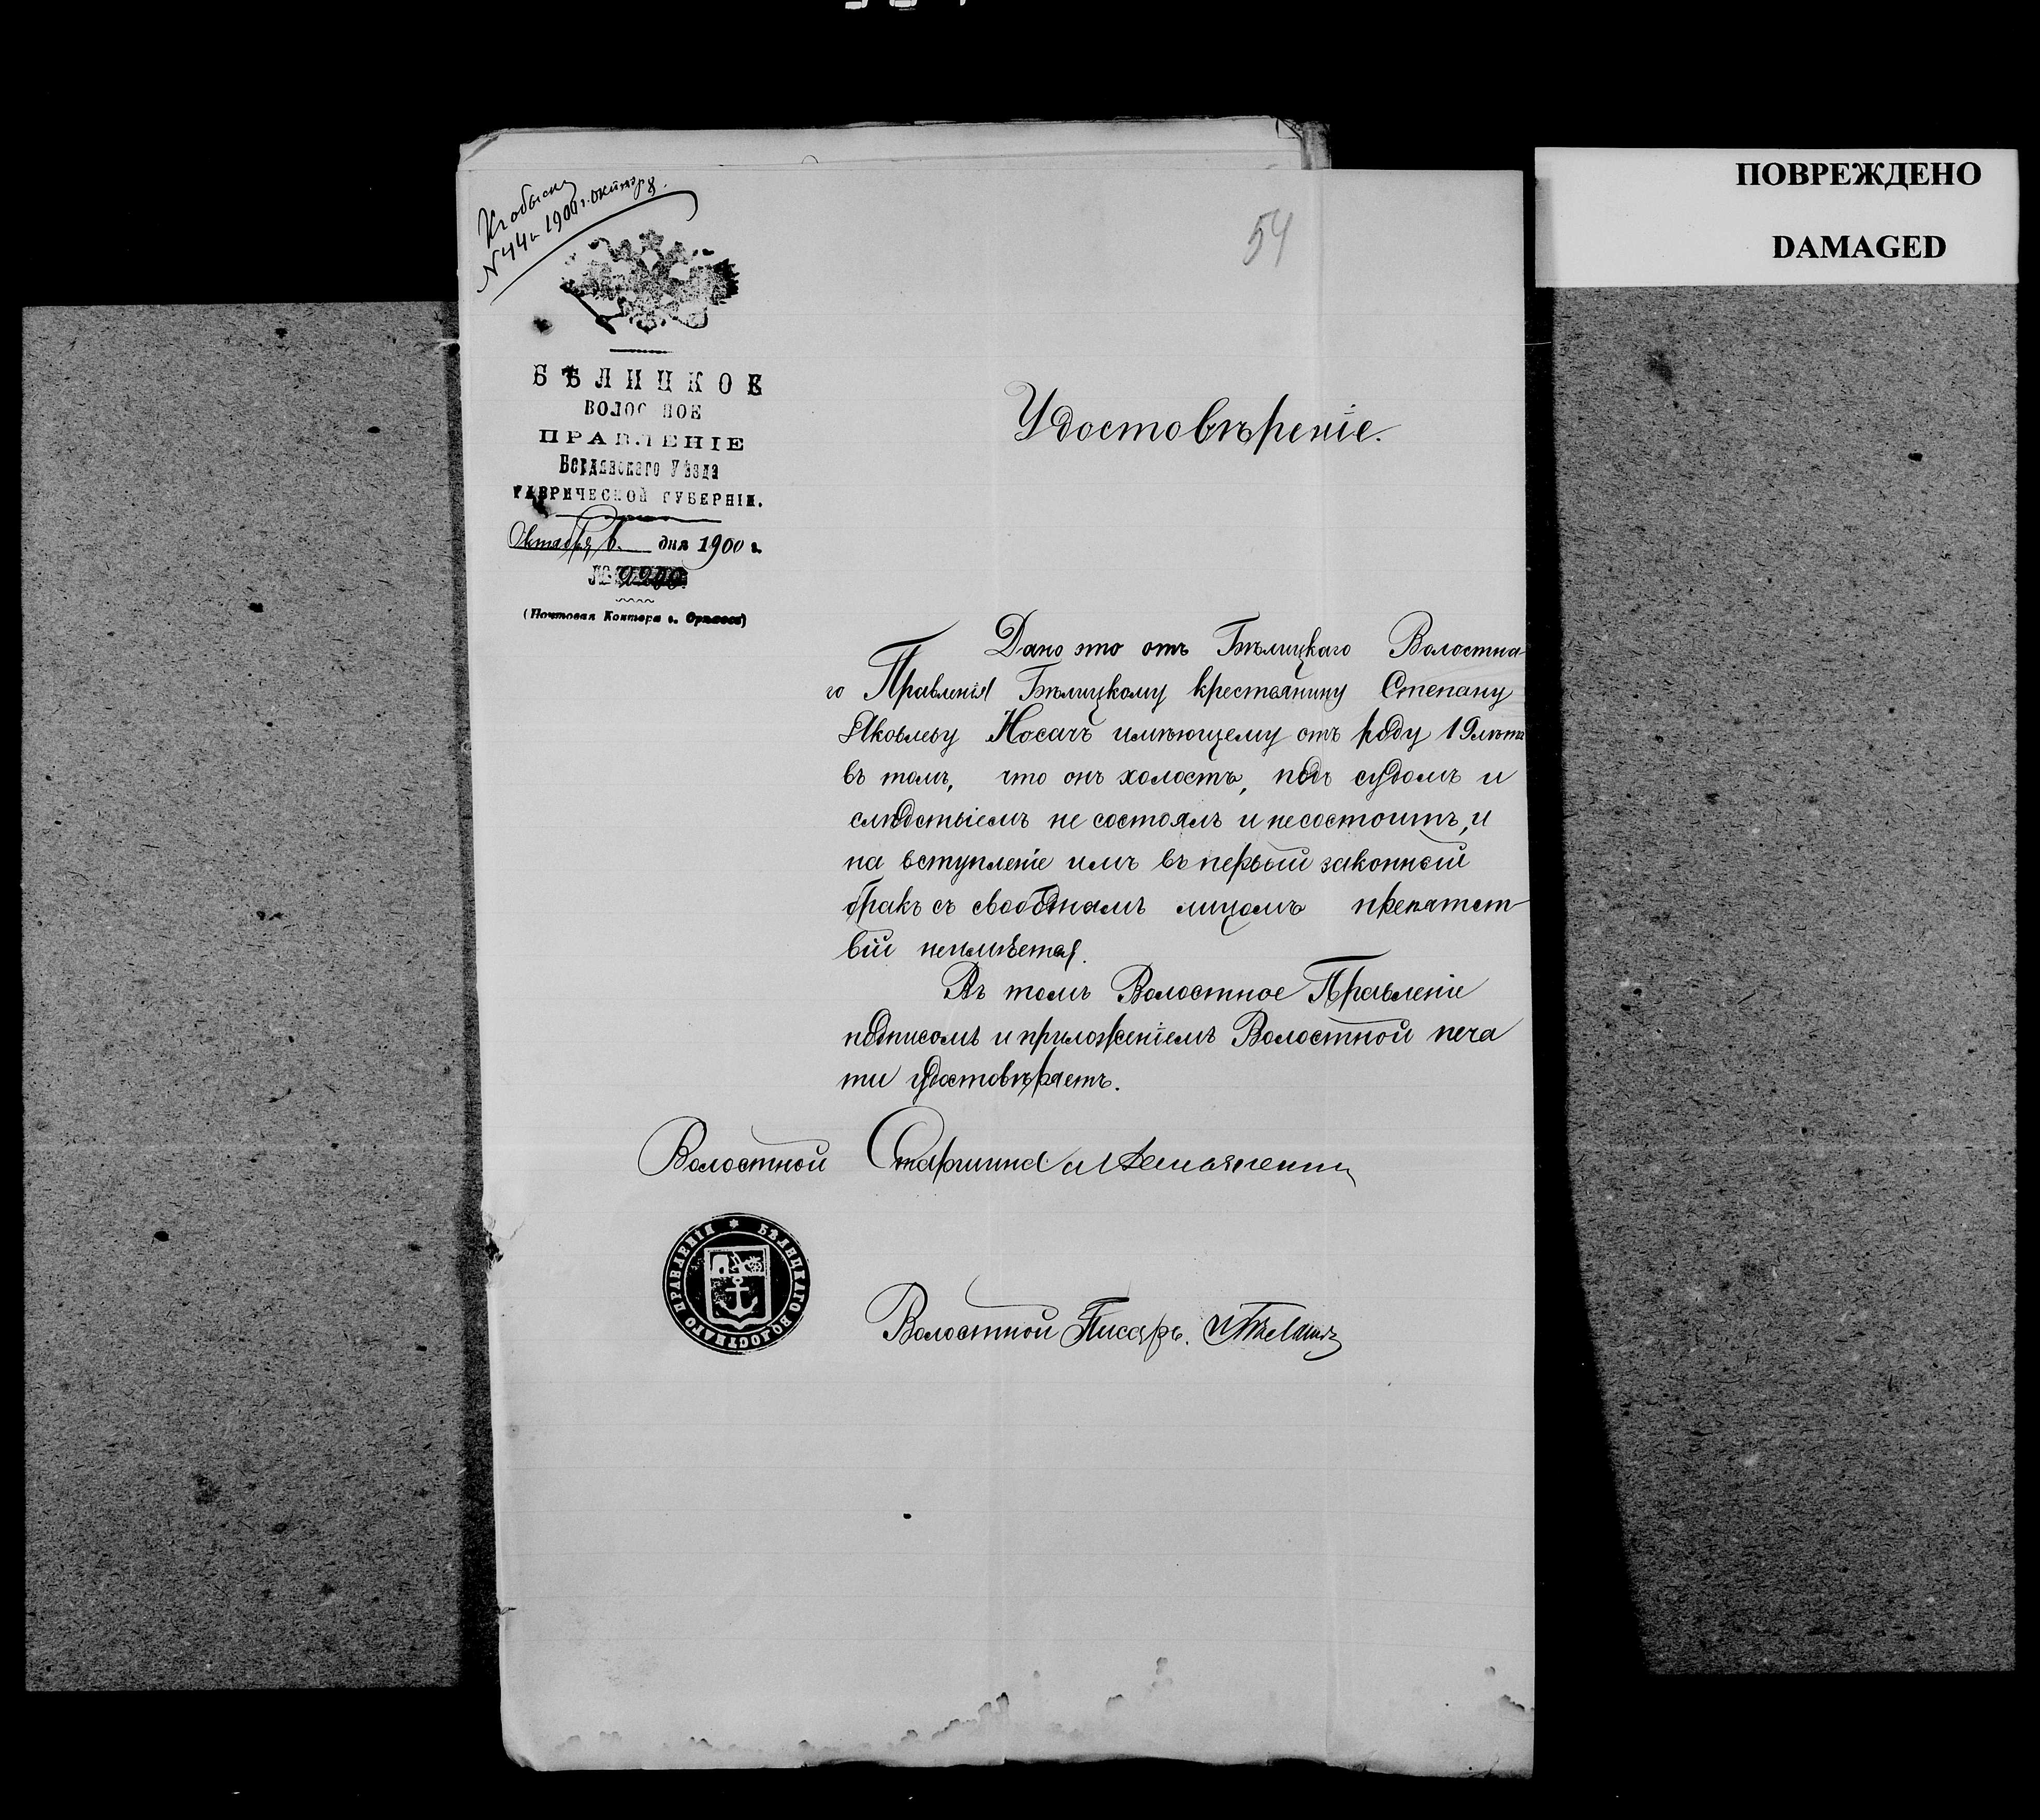 ПОВРЕЖДЕНО
DAMAGED
Къ обыску
№ 44 1900 г. октября.
54
БѢЛИЦКОЕ
ВОЛОС НОЕ
ПРАВЛЕНІЕ
Бердянскаго Уѣзда
ТАВРИЧЕСКОЙ ГУБЕРНІИ.
Октября 6. дня 1900 г.
№
(Почтовая Контора г.
Удостовѣреніе.
Дано это отъ Бѣлицкаго Волостна-
го Правленія Бѣлицкому крестьянину Степану
Яковлеву Носачъ имѣющему отъ роду 19 лѣтъ
въ томъ, что онъ холостъ, подъ судомъ и
слѣдствіемъ не состоялъ и несостоитъ, и
на вступленіе имъ въ первый законный
бракъ съ свободнымъ лицомъ препятст-
вій неимѣется.
Въ томъ Волостное Правленіе
подписомъ и приложеніемъ Волостной печа
ти удостовѣряетъ.
Волостной Старшина
БѢЛИЦКАГО ВОЛОСТНАГО ПРАВЛЕНІЯ
Волостной Писарь.